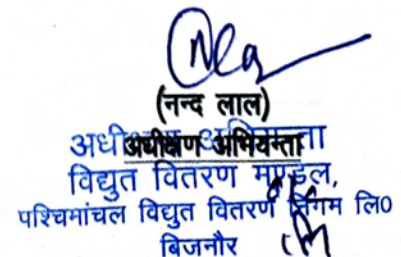 (नन्द लाल)
अधीक्षण अभियन्ता
विद्युत वितरण मण्डल,
पश्चिमांचल विद्युत वितरण निगम लि0
बिजनौर